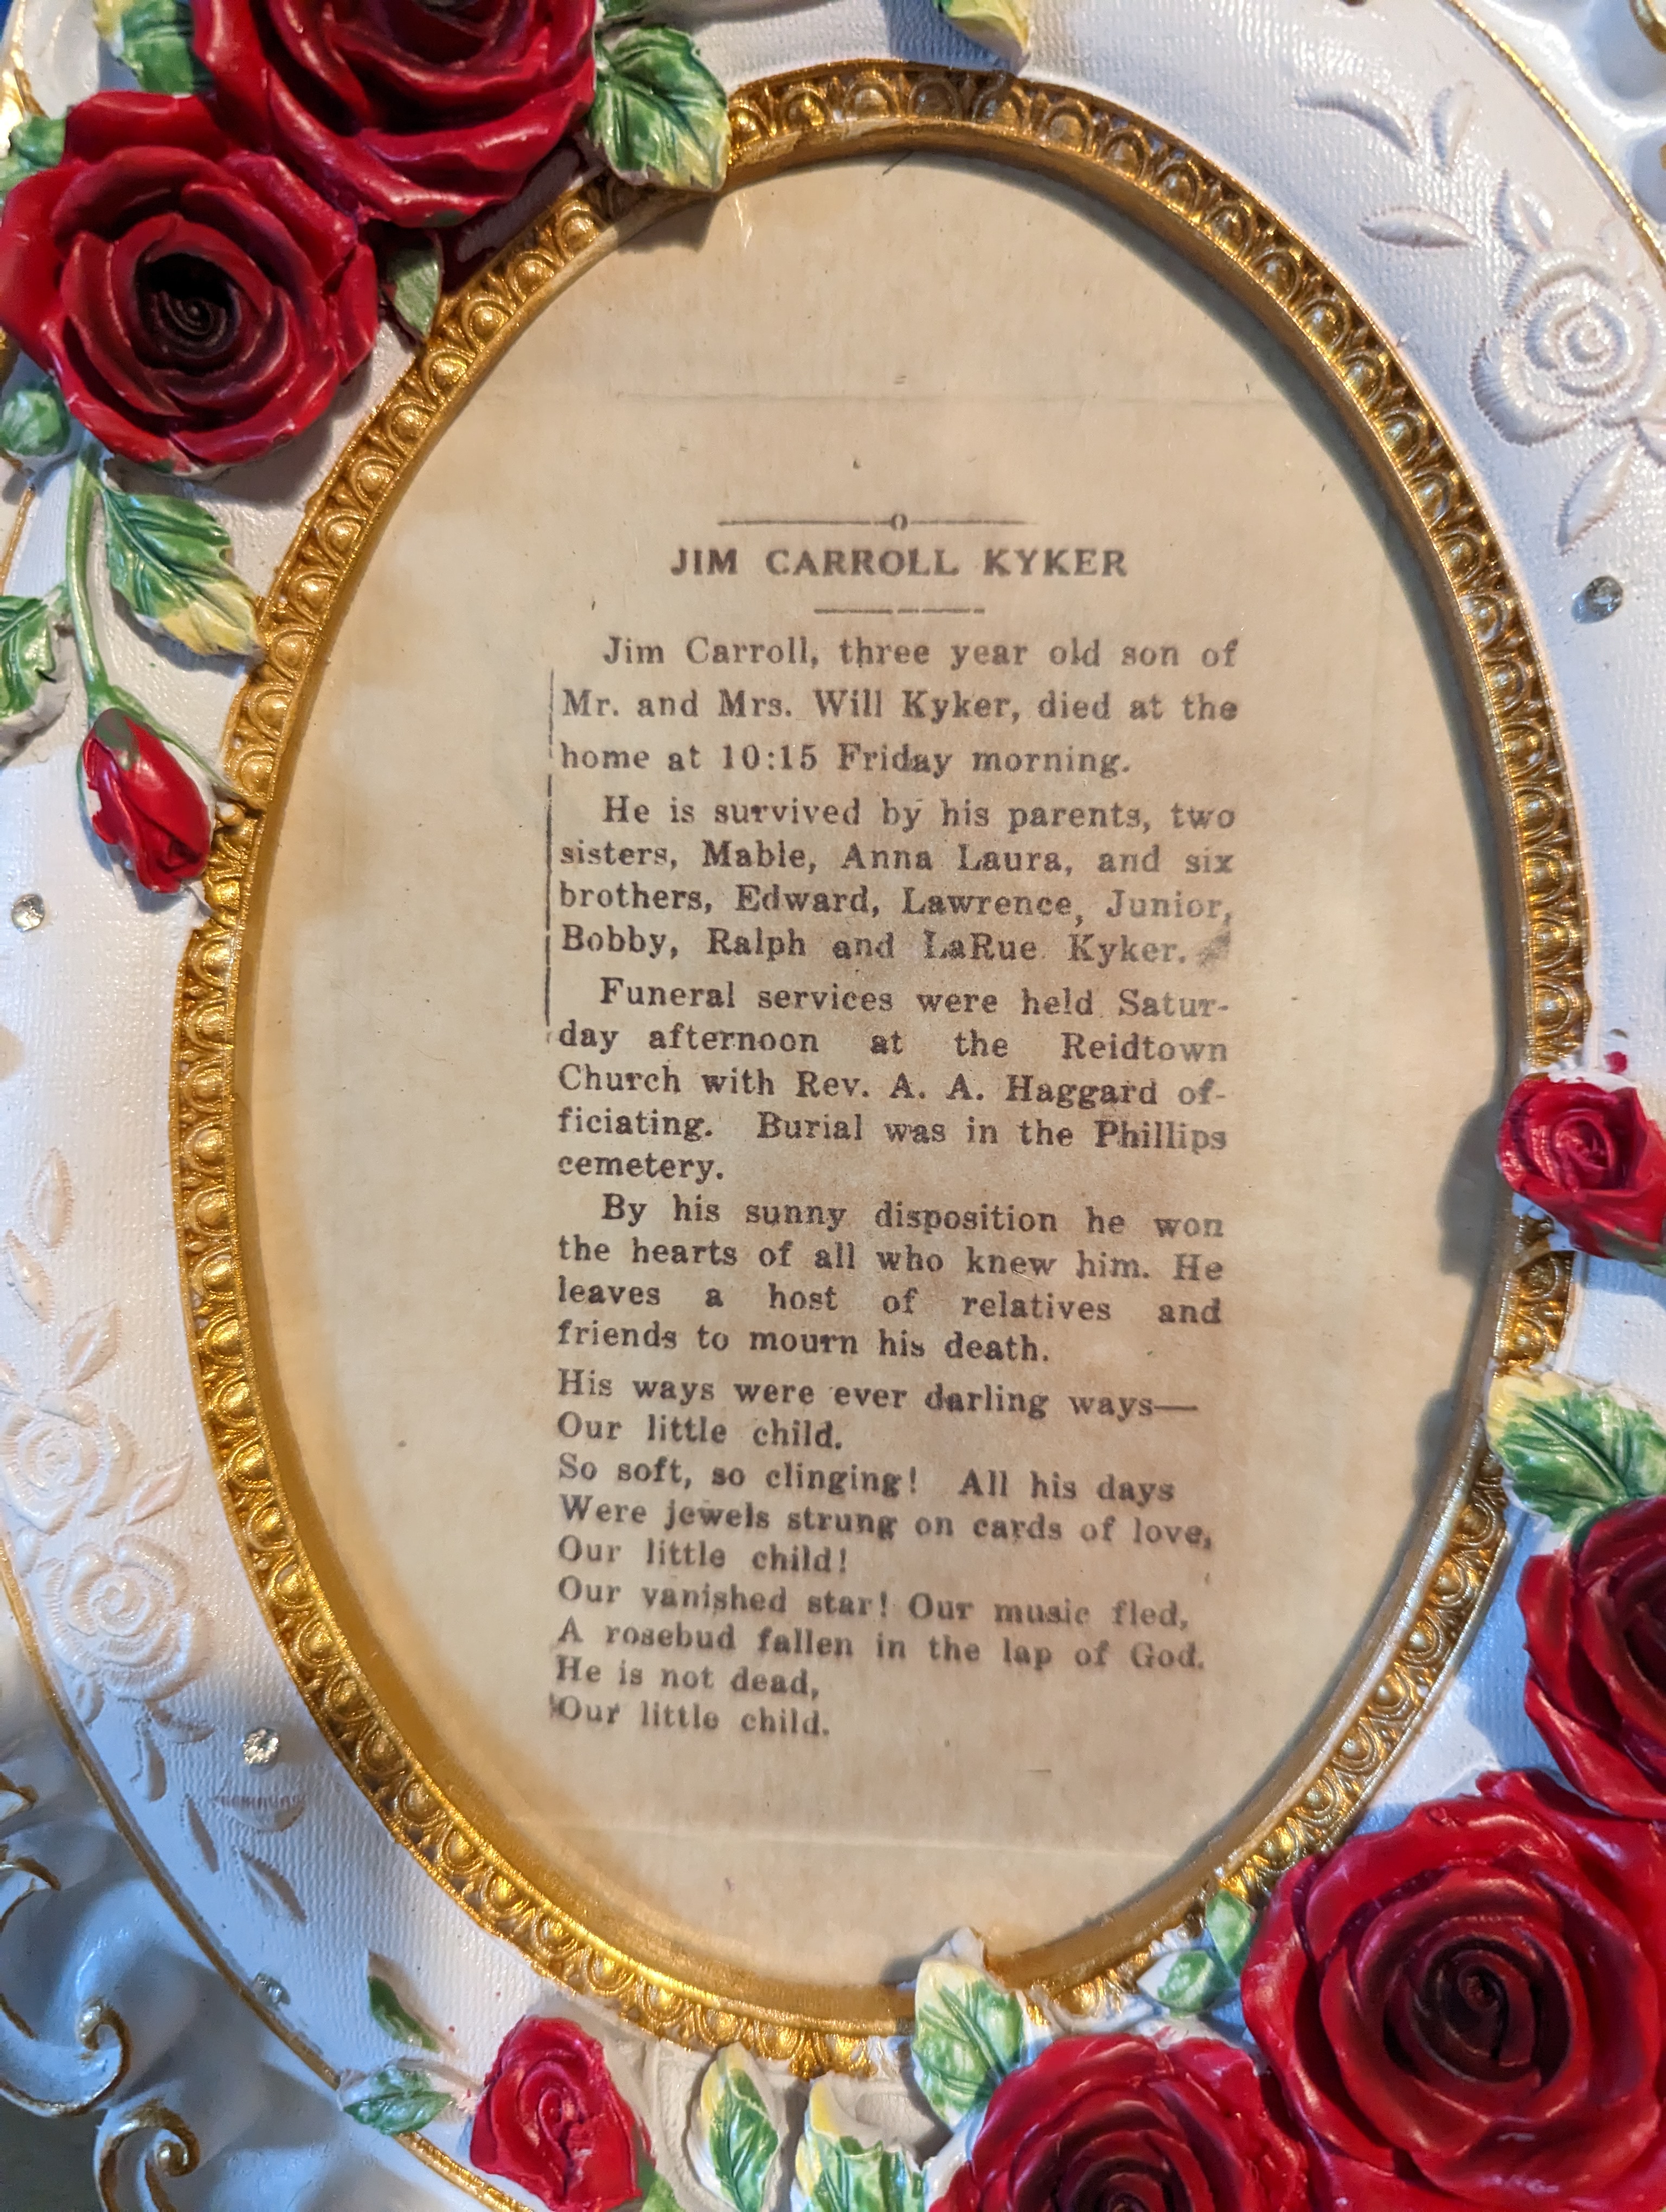 JIM CARROLL KYKER
Jim Carroll, three year old son of
Mr. and Mrs. Will Kyker, died at the
home at 10:15 Friday morning.
He is survived by his parents, two
sisters, Mable, Anna Laura, and six
brothers, Edward, Lawrence, Junior,
Bobby, Ralph and LaRue Kyker.
Funeral services were held Satur-
day afternoon at the Reidtown
Church with Rev. A. A. Haggard of-
ficiating. Burial was in the Phillips
cemetery.
By his sunny disposition he won
the hearts of all who knew him. He
leaves a host of relatives and
friends to mourn his death.
His ways were ever darling ways—
Our little child.
So soft, so clinging! All his days
Were jewels strung on cards of love,
Our little child!
Our vanished star! Our music fled,
A rosebud fallen in the lap of God.
He is not dead,
Our little child.